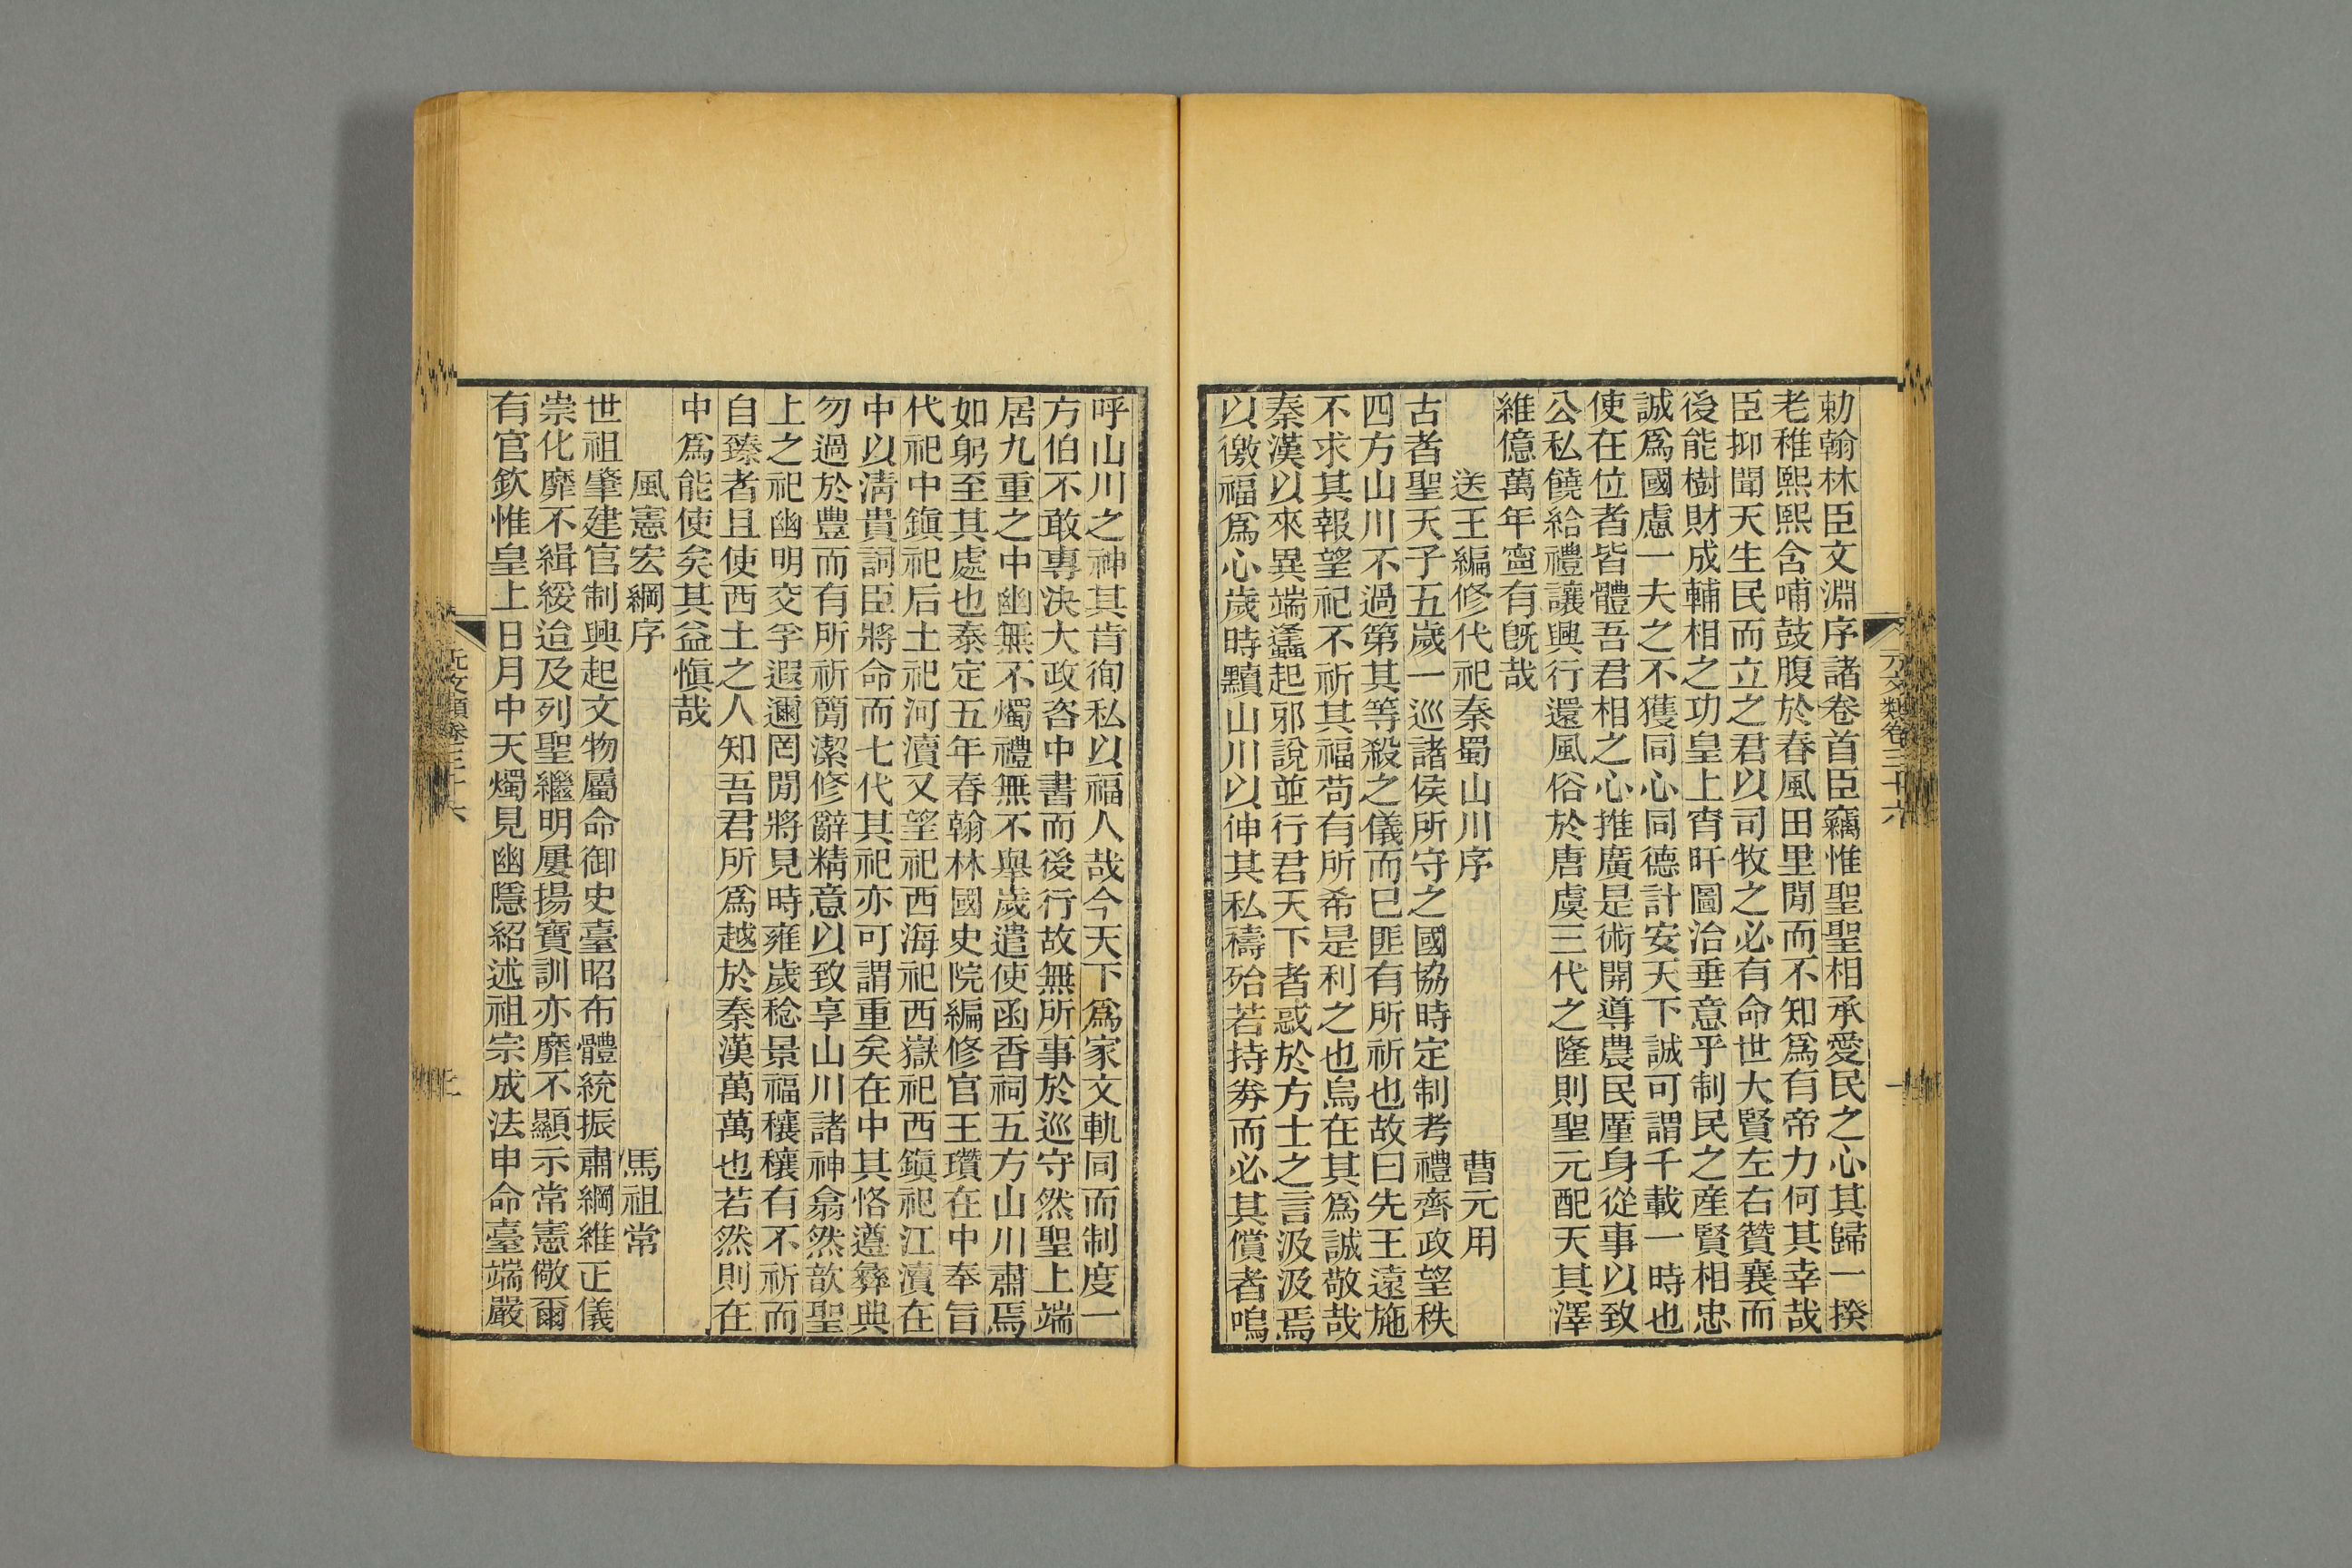 元文類卷三十六
勅翰林臣文淵序諸卷首臣竊惟聖聖相承愛民之心其歸一揆
老稚熙熙含哺鼓腹於春風田里閒而不知爲有帝力何其幸哉
臣抑聞天生民而立之君以司牧之必有命世大賢左右贊襄而
後能樹財成輔相之功皇上宵旰圖治垂意乎制民之産賢相忠
誠爲國慮一夫之不獲同心同德計安天下誠可謂千載一時也
使在位者皆體吾君相之心推廣是術開導農民厪身從事以致
公私饒給禮讓興行還風俗於唐虞三代之隆則聖元配天其澤
維億萬年寍有旣哉
送王編修代祀秦蜀山川序
曹元用
古者聖天子五歲一巡諸侯所守之國協時定制考禮齊政望秩
四方山川不過第其等殺之儀而已匪有所祈也故曰先王遠施
不求其報望祀不祈其福苟有所希是利之也烏在其爲誠敬哉
秦漢以來異端蠭起邪說並行君天下者惑於方士之言汲汲焉
以徼福爲心歲時黷山川以伸其私禱殆若持券而必其償者嗚
呼山川之神其肯徇私以福人哉今天下爲家文軌同而制度一
方伯不敢專決大政咨中書而後行故無所事於巡守然聖上端
居九重之中幽無不燭禮無不舉歲遣使函香祠五方山川肅焉
如躬至其處也泰定五年春翰林國史院編修官王瓚在中奉旨
代祀中鎭祀后土祀河瀆又望祀西海祀西嶽祀西鎭祀江瀆在
中以淸貴詞臣將命而七代其祀亦可謂重矣在中其恪遵彝典
勿過於豐而有所祈簡潔修辭精意以致享山川諸神翕然歆聖
上之祀幽明交孚遐邇罔閒將見時雍歲稔景福穰穰有不祈而
自臻者且使西土之人知吾君所爲越於秦漢萬萬也若然則在
中爲能使矣其益愼哉
風憲宏綱序
馬祖常
世祖肇建官制興起文物屬命御史臺昭布體統振肅綱維正儀
崇化靡不緝綏迨及列聖繼明屢揚寶訓亦靡不顯示常憲儆爾
有官欽惟皇上日月中天燭見幽隱紹述祖宗成法申命臺端嚴
元文類卷三十六